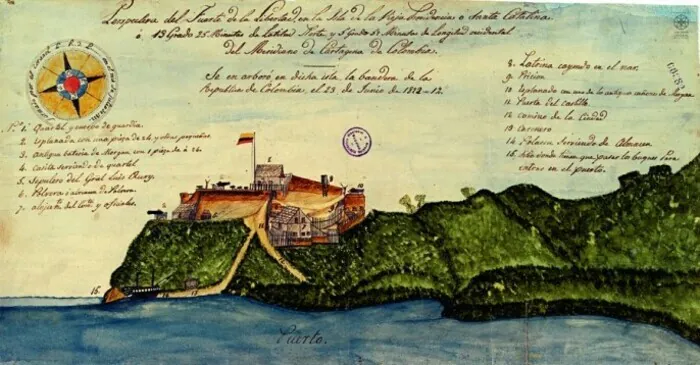 Perspectiva del Fuerte de la Libertad, en la Isla de la Vieja Providencia o Santa Catalina
á 13 Grado 25 Minutos de Latitud Norte, y 5 Grado 54 Minutos de Longitud occidental
del Meridiano de Cartagena de Colombia.
Se en arboro en dicha isla la bandera de la
Republica de Colombia, el 23 de Junio de 1822-12.
1. Quartel y cuerpo de guardia.
2. Esplanada con una pieza de 24, y otras pequeñas
3. Antigua bateria de Morgan con 1 pieza de á 24.
4. Casita serviendo de quartel
5. Sepulcro del Gral Luis Aury.
6. Pólvora
7. y oficiales.
8. Latrina cayendo en el mar.
9. Pricion
10. Esplanada con uno de los antiguos cañones de Morgan
11. Puerta del castillo
12. camino de la Ciudad
13. Carnero
14. Palacio serviendo de Almacen
15. Sitio donde tienen que pasar los buques para
entrar en el puerto.
16
Puerto.